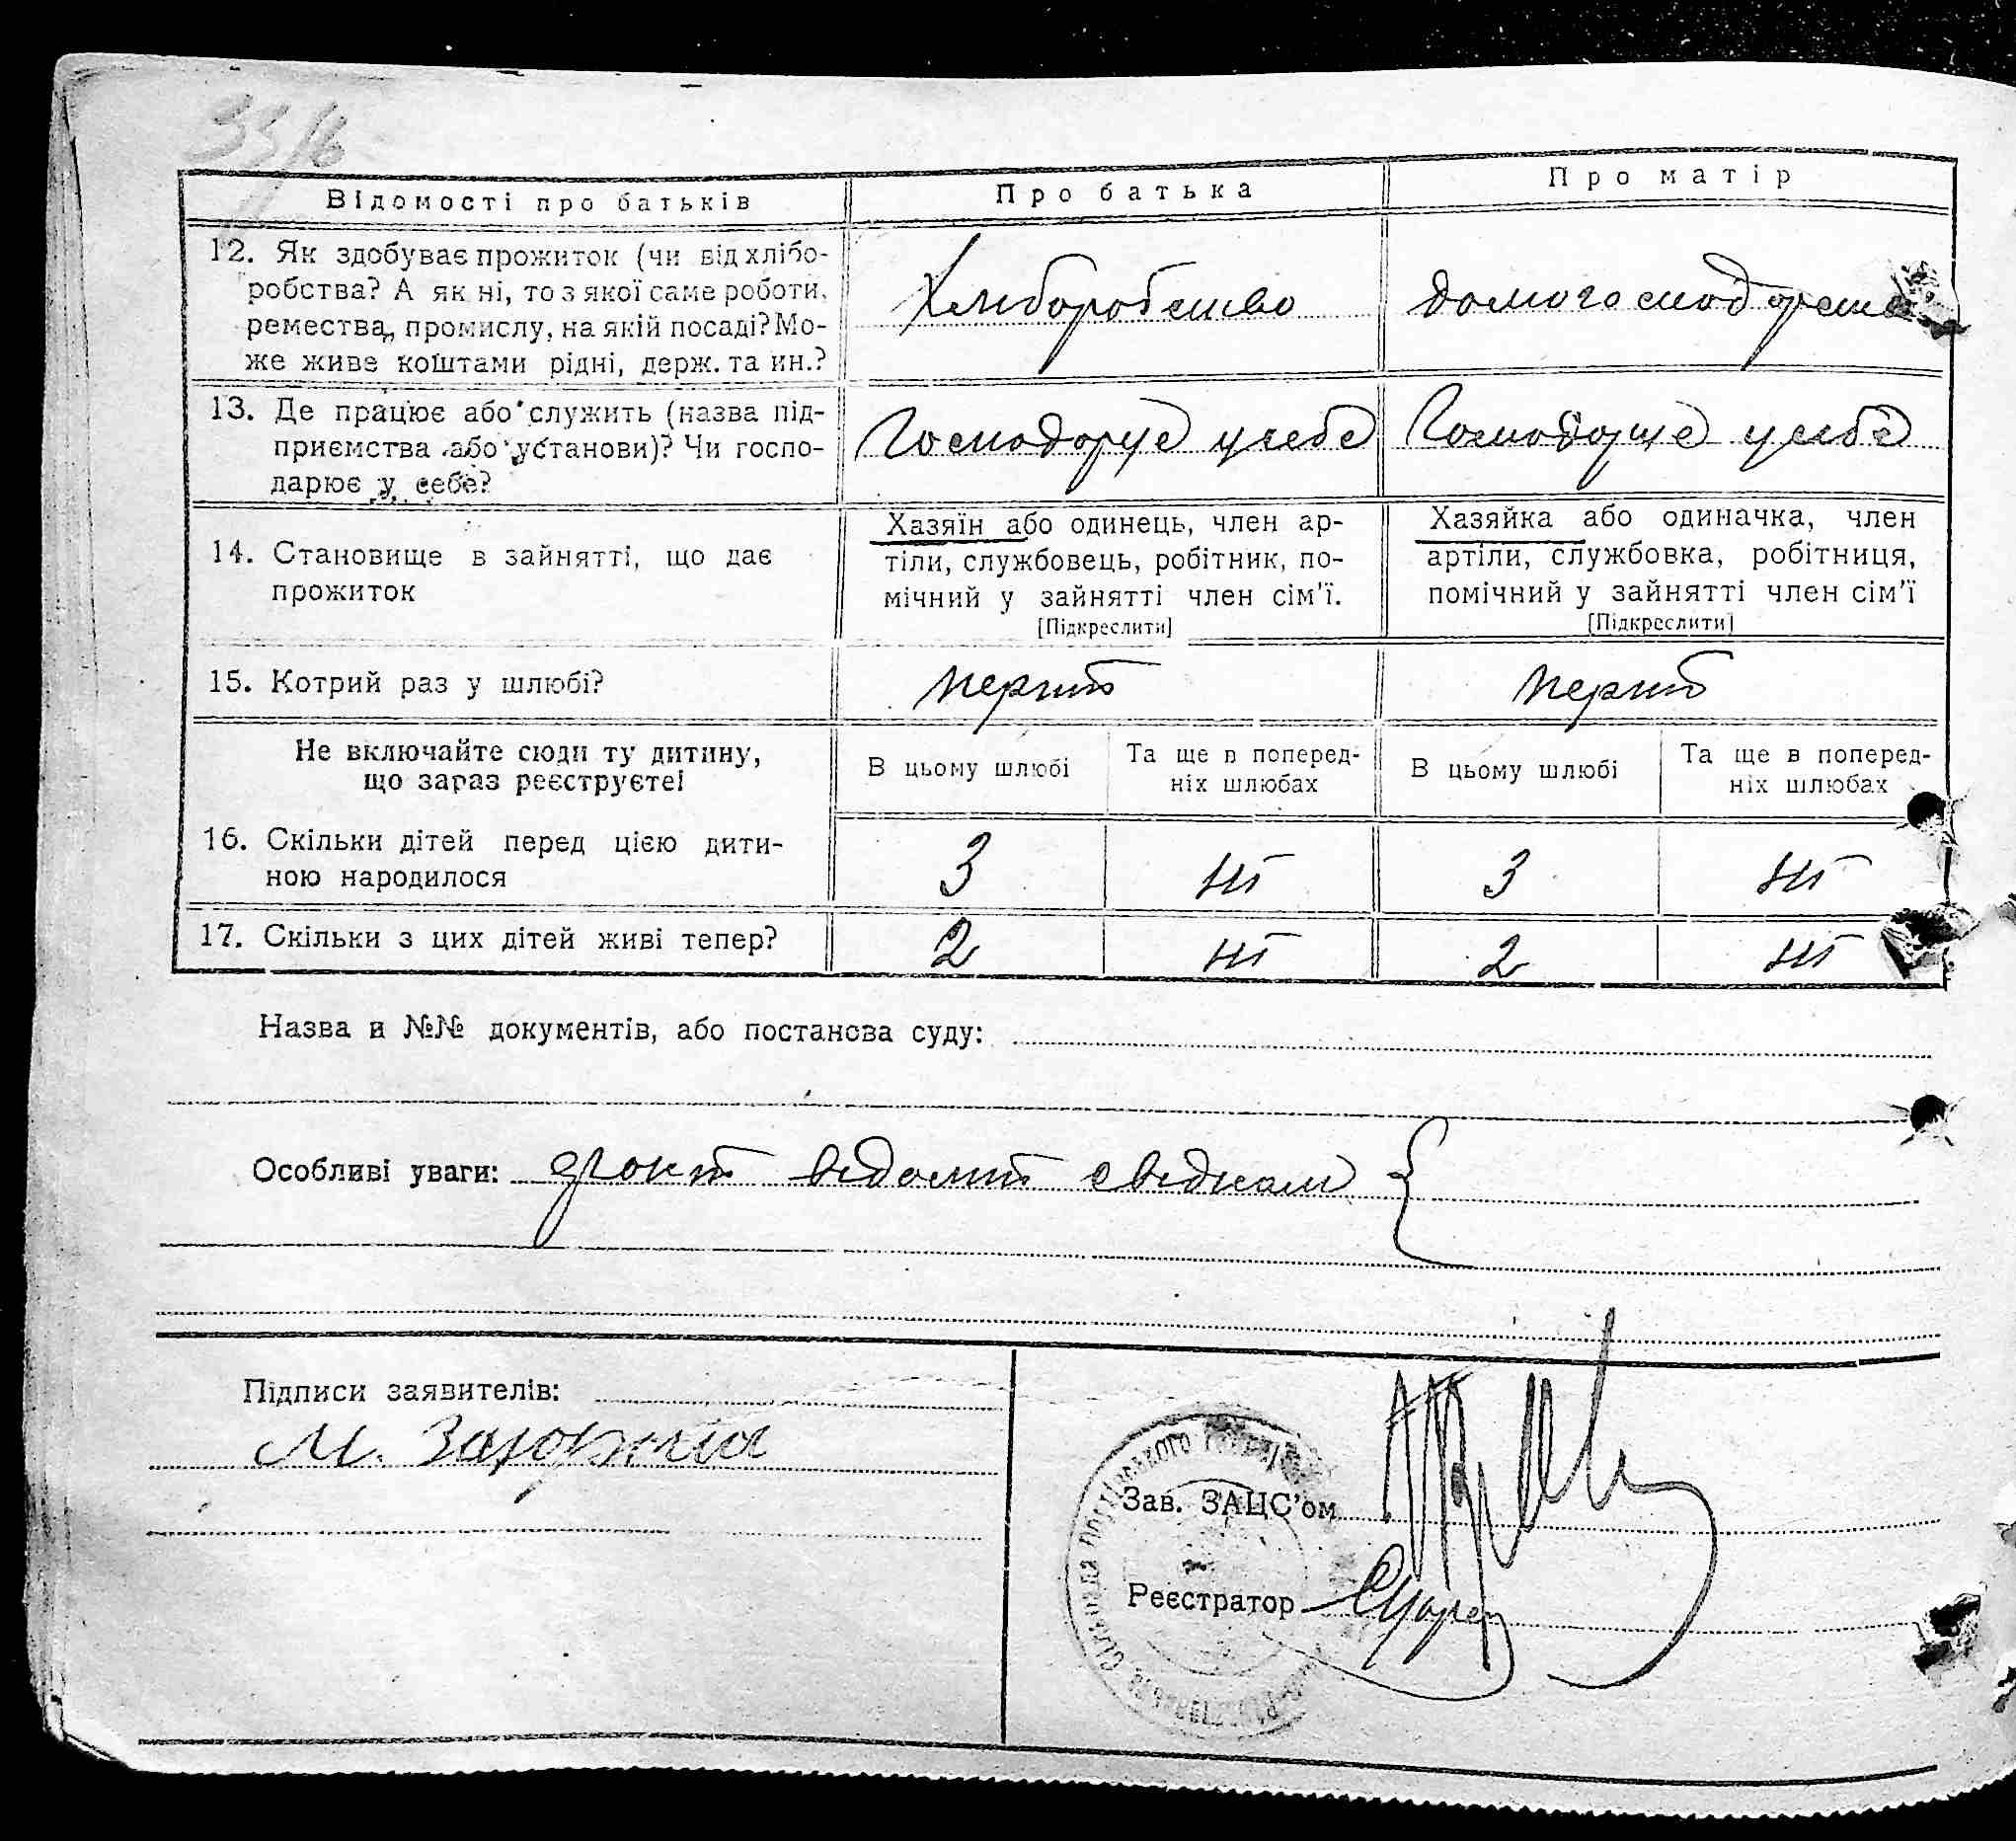 Відомості про батьків
Про батька
Про матір
12. Як здобуває прожиток (чи від хлібо-
робства? А як ні, то з якої саме роботи,
ремества, промислу, на якій посаді? Мо-
же живе коштами рідні, держ. та ин.?
Хліборобство
13. Де працює або служить (назва під-
приємства або установи)? Чи госпо-
дарює у себе?
Господорує у себе
Господорує у себе
14. Становище в зайнятті, що дає
прожиток
Хазяїн або одинець, член ар-
тіли, службовець, робітник, по-
мічний у зайнятті член сім'ї.
[Підкреслити]
Хазяйка або одиначка, член
артіли, службовка, робітниця,
помічний у зайнятті член сім'ї
[Підкреслити]
15. Котрий раз у шлюбі?
Не включайте сюди ту дитину,
що зараз реєструєте!
В цьому шлюбі
Та ще в поперед-
ніх шлюбах
В цьому шлюбі
Та ще в поперед-
ніх шлюбах
16. Скільки дітей перед цією дити-
ною народилося
3
ні
3
ні
17. Скільки з цих дітей живі тепер?
2
ні
2
ні
Назва й №№ документів, або постанова суду:
Особливі уваги:
Підписи заявителів:
М.
Зав. ЗАЦС'ом
Реєстратор